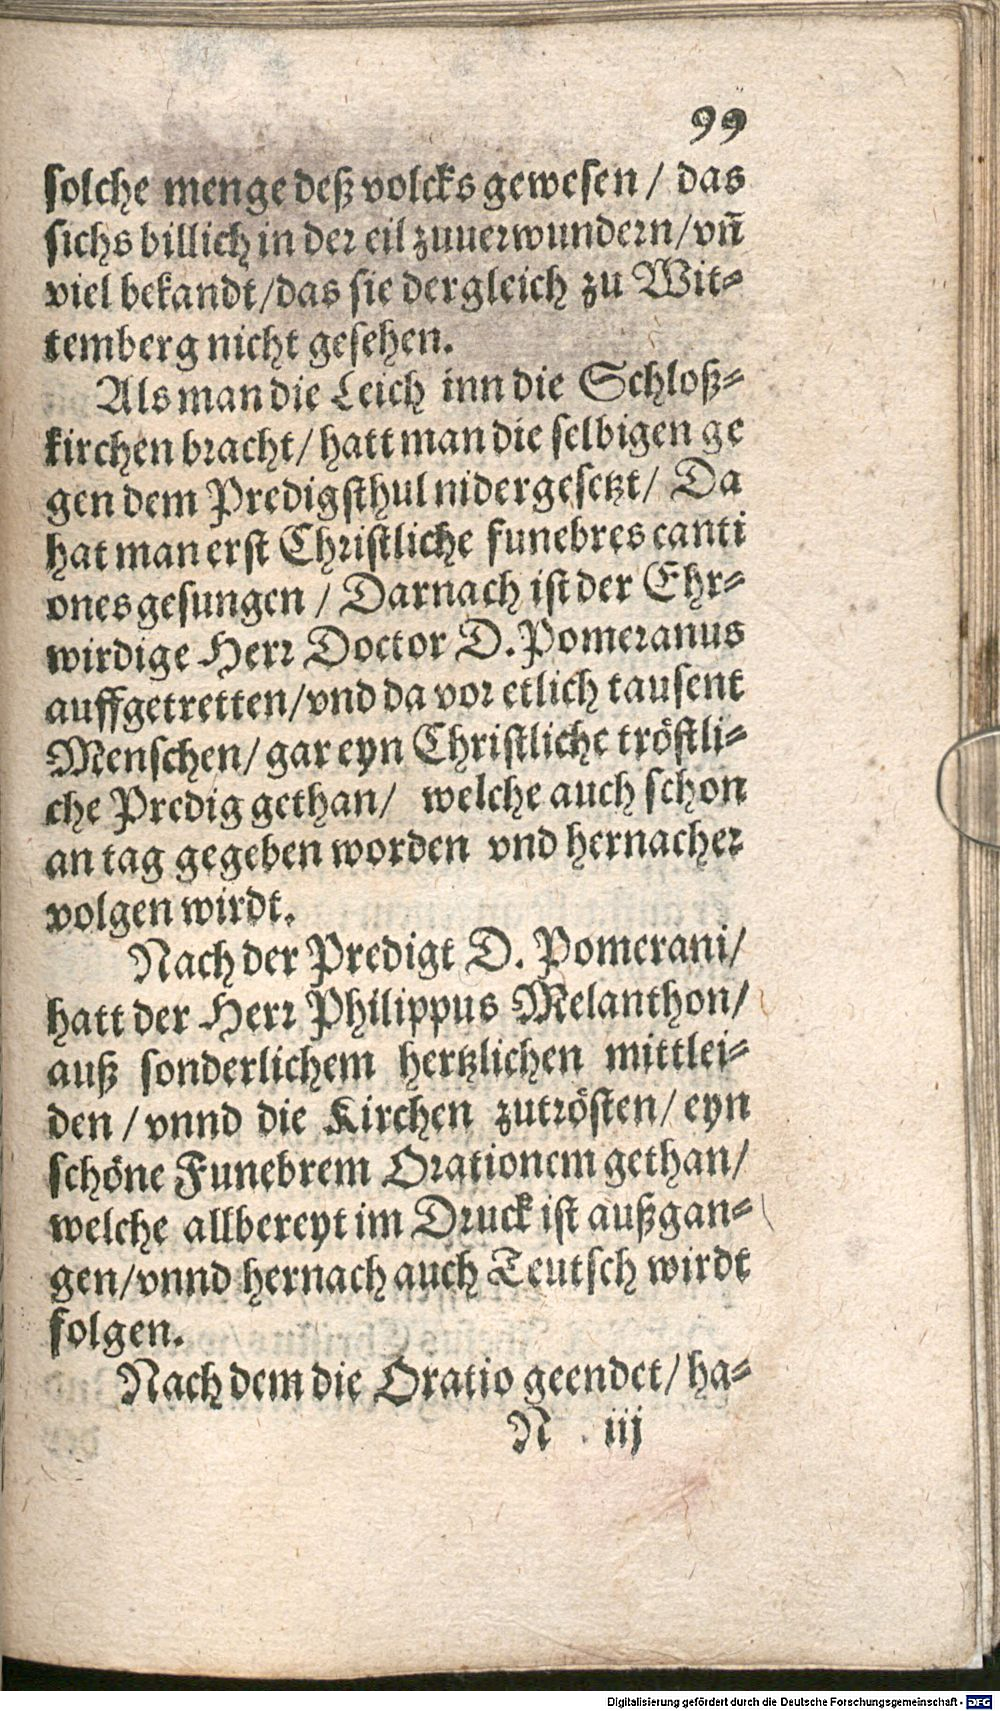 99
solche menge deß volcks gewesen / das
sichs billich in der eil zuuerwundern / vn̄
viel bekandt / das sie dergleich zu Wit⸗
temberg nicht gesehen.
Als man die Leich inn die Schloß⸗
kirchen bracht / hatt man die selbigen ge
gen dem Predigsthul nidergesetzt / Da
hat man erst Christliche funebres canti
ones gesungen / Darnach ist der Ehr⸗
wirdige Herr Doctor D. Pomeranus
auffgetretten / vnd da vor etlich tausent
Menschen / gar eyn Christliche tröstli⸗
che Predig gethan / welche auch schon
an tag gegeben worden vnd hernacher
volgen wirdt.
Nach der Predigt D. Pomerani /
hatt der Herr Philippus Melanthon /
auß sonderlichem hertzlichen mittlei⸗
den / vnnd die Kirchen zutrösten / eyn
schöne Funebrem Orationem gethan /
welche allbereyt im Druck ist außgan⸗
gen / vnnd hernach auch Teutsch wirdt
folgen.
Nach dem die Oratio geendet / ha⸗
N iij
Digitalisierung gefördert durch die Deutsche Forschungsgemeinschaft - DFG